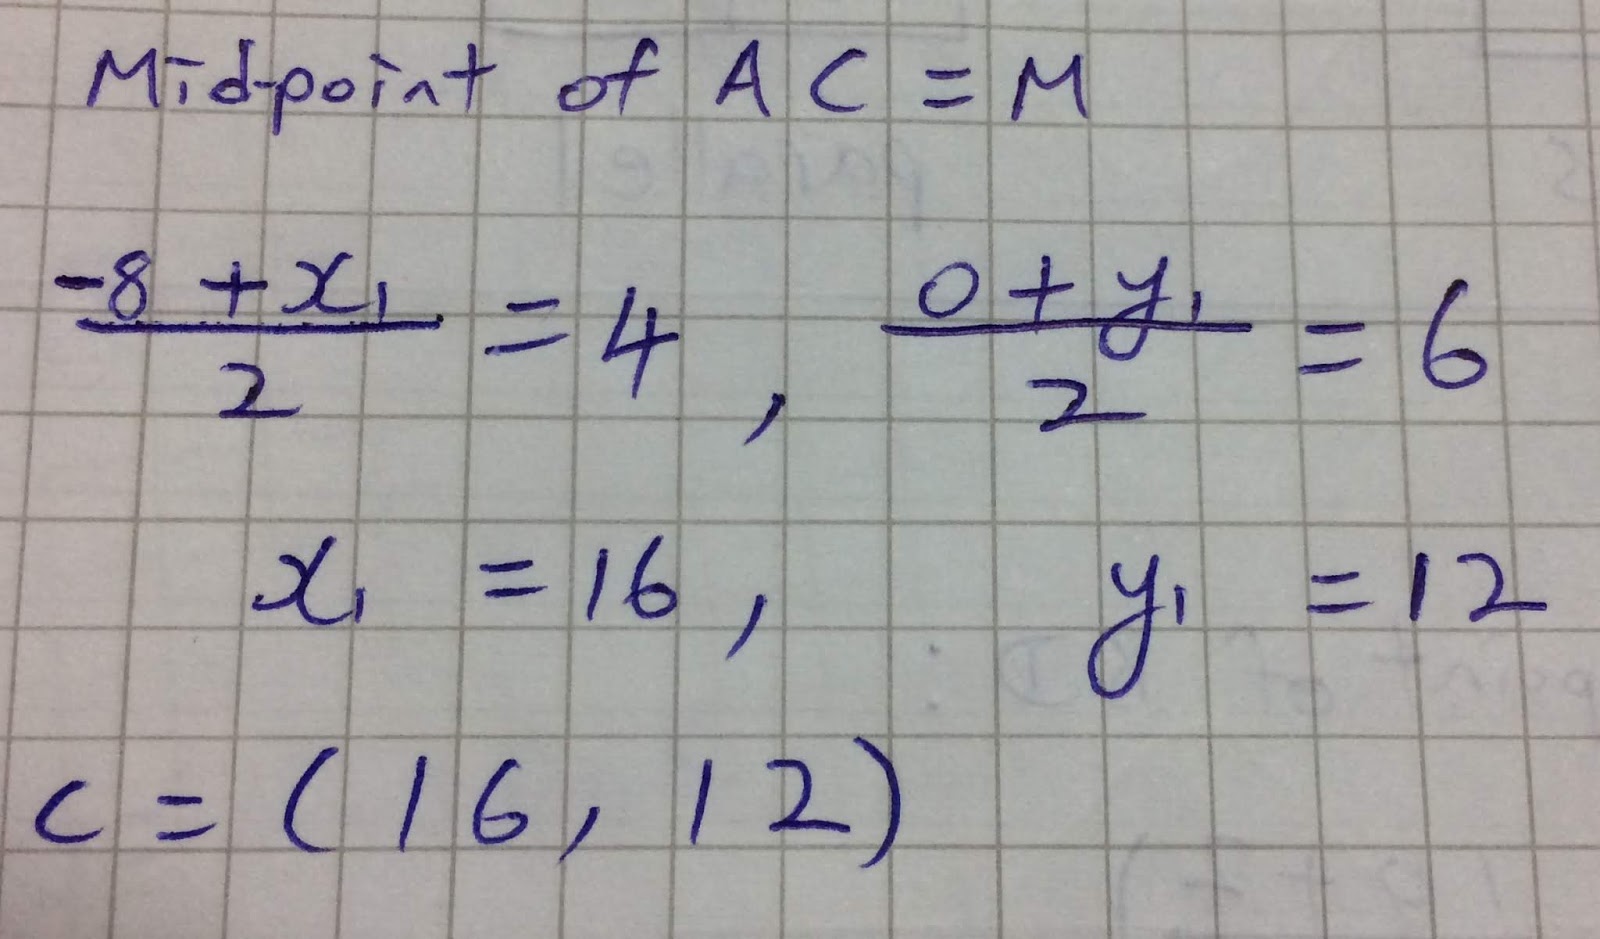 Mid-point of AC = M
-8 + x₁ / 2 = 4 , 0 + y₁ / 2 = 6
x₁ = 16 , y₁ = 12
C = (16, 12)